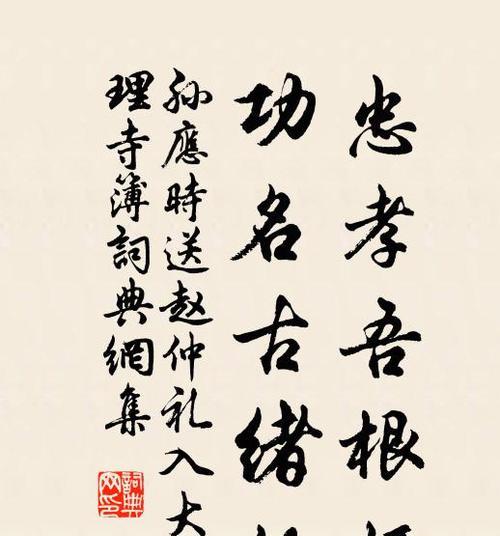 忠孝吾根
功名古绪
孙應時送赵仲礼入大
理寺簿詞典網集
詞典網印